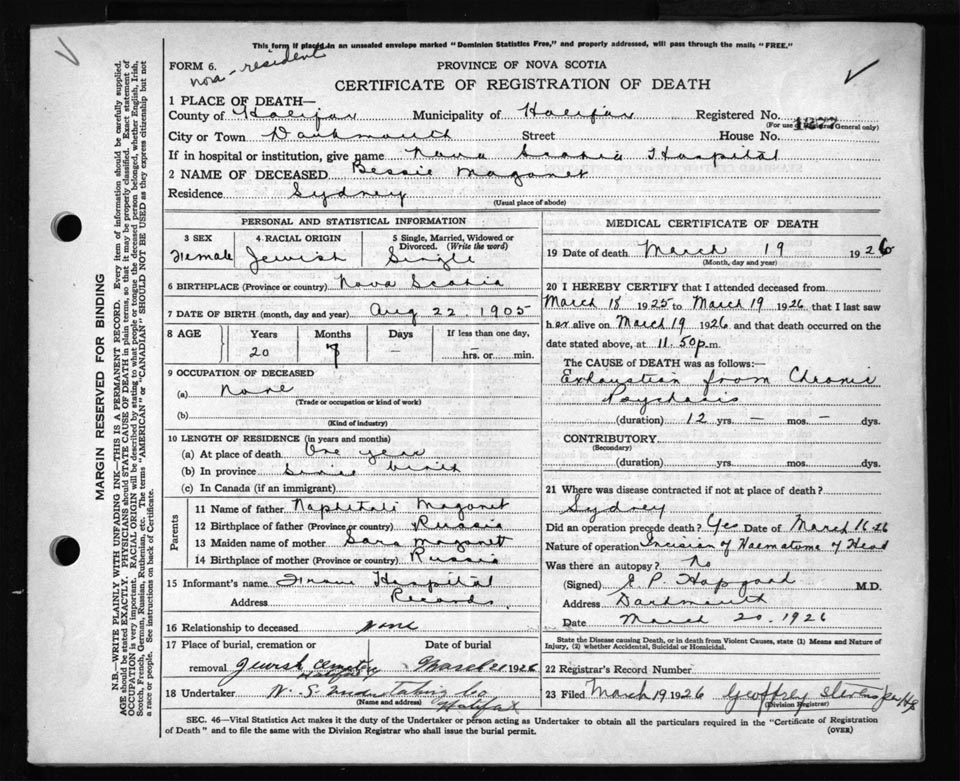 This form if placed in an unsealed envelope marked "Dominion Statistics Free," and properly addressed, will pass through the mails "FREE."
FORM 6. PROVINCE OF NOVA SCOTIA
non-resident
CERTIFICATE OF REGISTRATION OF DEATH
1 PLACE OF DEATH—
County of Halifax Municipality of Halifax Registered No.
(For use of Registrar General only)
City or Town Dartmouth Street House No.
If in hospital or institution, give name Nova Scotia Hospital
2 NAME OF DECEASED Bessie Maganet
Residence Sydney
(Usual place of abode)
PERSONAL AND STATISTICAL INFORMATION
3 SEX 4 RACIAL ORIGIN 5 Single, Married, Widowed or Divorced. (Write the word)
Female Jewish Single
6 BIRTHPLACE (Province or country) Nova Scotia
7 DATE OF BIRTH (month, day and year) Aug 22. 1905
8 AGE Years Months Days If less than one day,
20 – – hrs. or min.
9 OCCUPATION OF DECEASED
(a) None
(Trade or occupation or kind of work)
(b)
(Kind of industry)
10 LENGTH OF RESIDENCE (in years and months)
(a) At place of death One year
(b) In province Since birth
(c) In Canada (if an immigrant)
Parents
11 Name of father Naphtali Maganet
12 Birthplace of father (Province or country) Russia
13 Maiden name of mother Sara Maganet
14 Birthplace of mother (Province or country) Russia
15 Informant's name From Hospital
Address Records
16 Relationship to deceased none
17 Place of burial, cremation or Date of burial
removal Jewish Cemetery Halifax March 21 1926
18 Undertaker N. S. Undertaking Co
(Name and address) Halifax
MEDICAL CERTIFICATE OF DEATH
19 Date of death March 19 1926
(Month, day and year)
20 I HEREBY CERTIFY that I attended deceased from
March 18 1925 to March 19 1926 that I last saw
her alive on March 19 1926 and that death occurred on
date stated above, at 11.50 p.m.
The CAUSE OF DEATH was as follows:—
Exhaustion from Chronic
Psychosis
(duration) 12 yrs. – mos. – dys.
CONTRIBUTORY
(Secondary)
(duration) yrs. mos. dys.
21 Where was disease contracted if not at place of death?
Sydney
Did an operation precede death? Yes Date of March 16.26
Nature of operation Incision of Haematoma of Head
Was there an autopsy? No
(Signed) E. P. Hopgood M.D.
Address Dartmouth
Date March 20. 1926
State the Disease causing Death, or in death from Violent Causes, state (1) Means and Nature of Injury, (2) whether Accidental, Suicidal or Homicidal.
22 Registrar's Record Number
23 Filed March 19 1926 Geoffrey
(Division Registrar)
SEC. 46—Vital Statistics Act makes it the duty of the Undertaker or person acting as Undertaker to obtain all the particulars required in the "Certificate of Registration
of Death" and to file the same with the Division Registrar who shall issue the burial permit. (OVER)
MARGIN RESERVED FOR BINDING
N.B.—WRITE PLAINLY WITH UNFADING INK—THIS IS A PERMANENT RECORD. Every item of information should be carefully supplied.
AGE should be stated EXACTLY. PHYSICIANS should STATE CAUSE OF DEATH in plain terms, so that it may be properly classified. Exact statement of
OCCUPATION is very important. RACIAL ORIGIN will be described by stating to what people or tongue the deceased person belonged, whether English, Irish,
Scotch, French, German, Russian, Ruthenian, etc. The terms "AMERICAN" or "CANADIAN" SHOULD NOT BE USED as they express citizenship but not
a race or people. See instructions on back of Certificate.